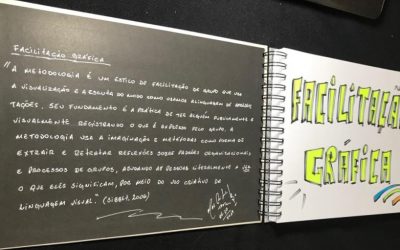 FACILITAÇÃO GRÁFICA
"A METODOLOGIA É UM ESTILO DE FACILITAÇÃO DE GRUPO QUE USA
A VISUALIZAÇÃO E A ESCUTA DO MODO COMO USAMOS A LINGUAGEM DE
TAÇÕES. SEU FUNDAMENTO É A PRÁTICA DE TER ALGUÉM PUBLICAMENTE E
VISUALMENTE REGISTRANDO O QUE É PELO GRUPO. A
METODOLOGIA USA A IMAGINAÇÃO E METÁFORAS COMO FORMA DE
EXTRAIR E RETRATAR REFLEXÕES SOBRE PADRÕES ORGANIZACIONAIS
E PROCESSOS DE GRUPOS, AJUDANDO AS PESSOAS LITERALMENTE A VER
O QUE ELES SIGNIFICAM, POR MEIO DO USO CRIATIVO DA
LINGUAGEM VISUAL. (SIBBET, 2006)
FACILITAÇA
GRÁFICA